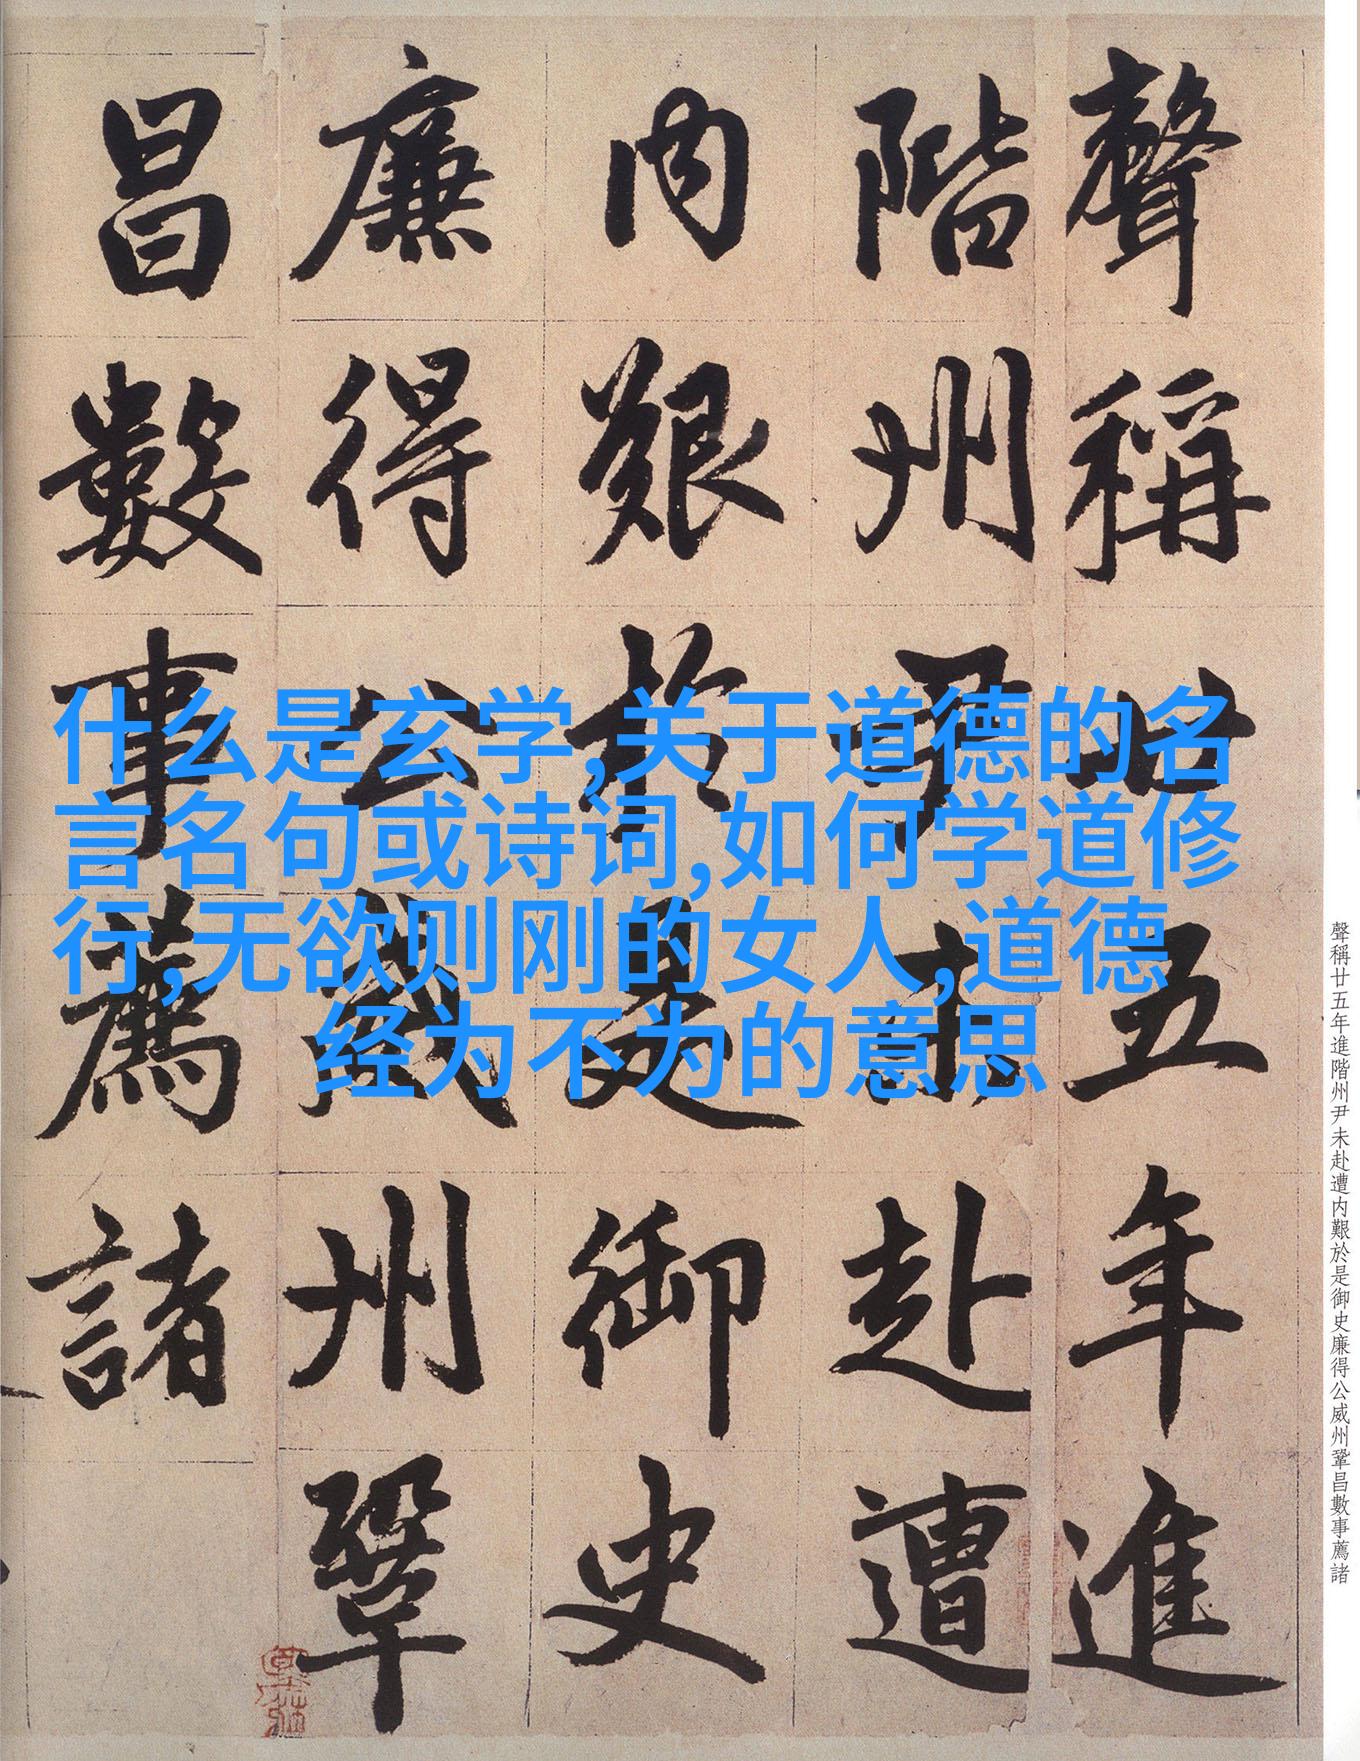 聲稱廿五年進
階州尹未赴遭
内艱於是御史
廉得公威州鞏
昌數事薦諸
什么是玄学,关于道德的名
言名句或诗词,如何学道修
行,无欲则刚的女人,道德
经为不为的意思
聲稱廿五年進階州尹未赴遭内艱於是御史廉得公威州鞏昌數事薦諸